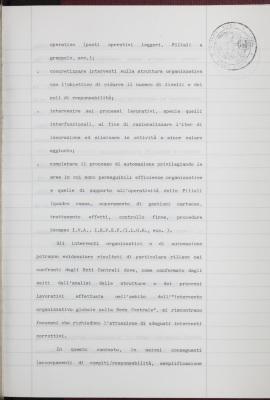 operativo (posti operativi leggeri, Filiali a
grappolo, ecc.);
- concretizzare interventi sulla struttura organizzativa
con l'obiettivo di ridurre il numero di livelli e dei
ruoli di responsabilità;
- intervenire sui processi lavorativi, specie quelli
interfunzionali, al fine di razionalizzare l'iter di
lavorazione ed eliminare le attività a minor valore
aggiunto;
- completare il processo di automazione privilegiando le
aree in cui sono perseguibili efficienze organizzative
e quelle di supporto all'operatività delle Filiali
(quadro cassa, superamento di gestioni cartacee,
trattamento effetti, controllo firme, procedure
incassi I.V.A., I.R.P.E.F./I.LO.R., ecc. ).
Gli interventi organizzativi e di automazione
potranno evidenziare risultati di particolare rilievo nei
confronti degli Enti Centrali dove, come confermato dagli
esiti dell'analisi delle strutture e dei processi
lavorativi effettuata nell'ambito dell'"intervento
organizzativo globale sulla Sede Centrale", si riscontrano
fenomeni che richiedono l'attuazione di adeguati interventi
correttivi.
In questo contesto, in merito conseguenti
accorpamenti di compiti/responsabilità, semplificazione